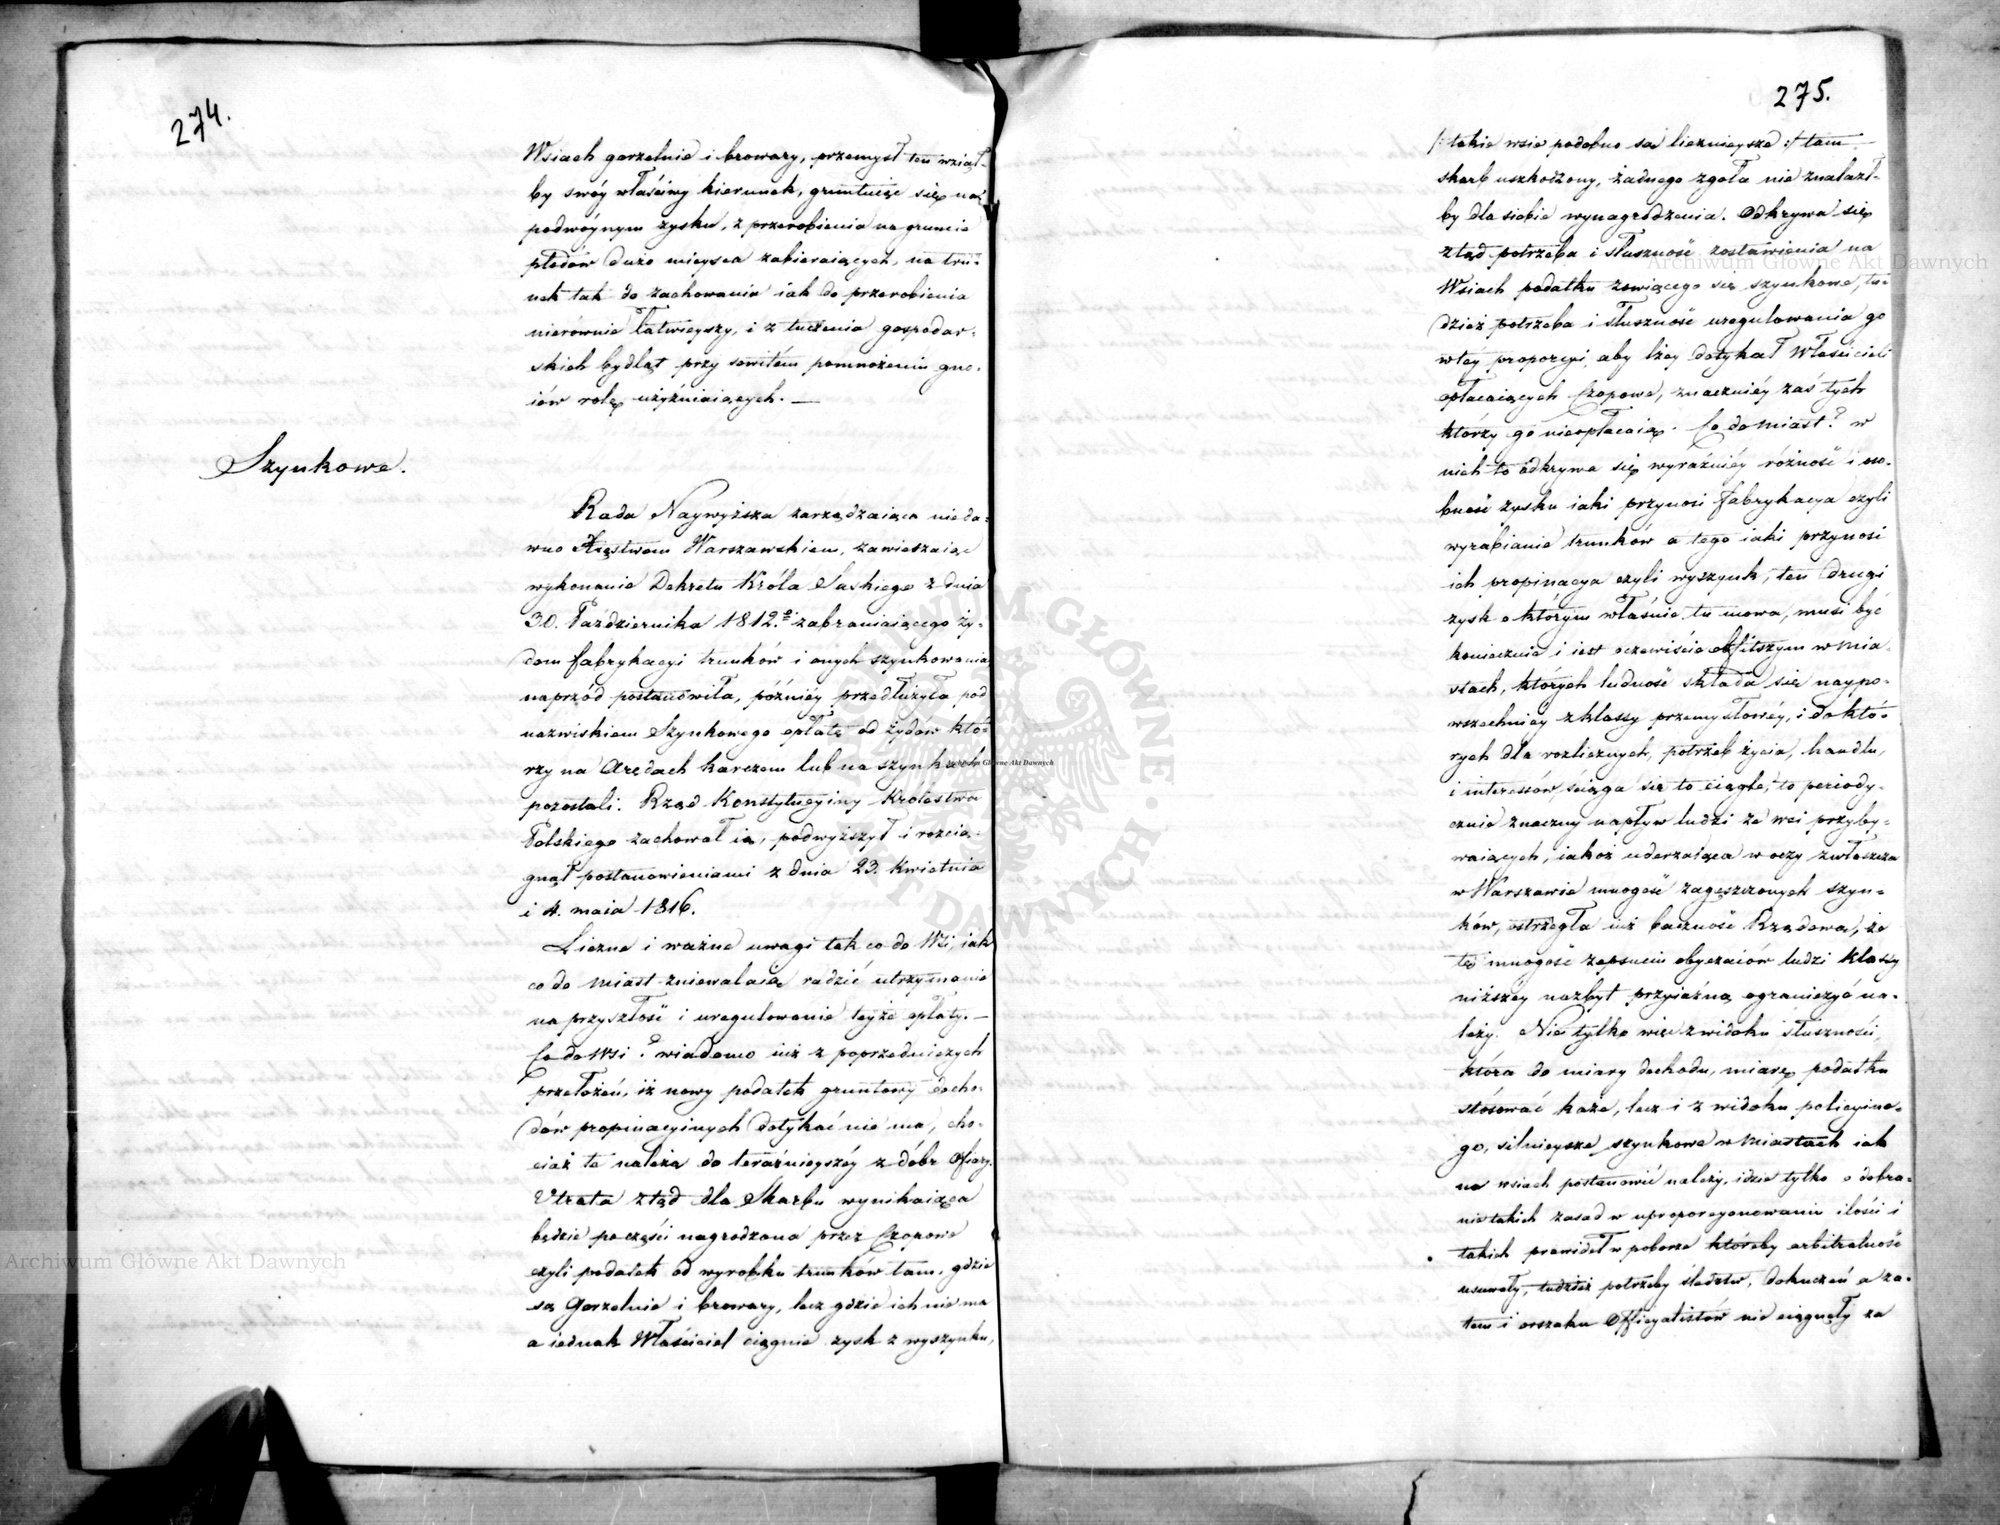 274.
Wsiach gorzelnie i browary, przemysł ten wziął-
by swóy właściwy kierunek, gruntuiąc się na
podwóynym zysku, z przerobienia na gruncie
płodów dużo mieysca zabieraiących, na tru-
nek tak do zachowania iak do przerobienia
nierównie łatwieyszy, i z tuczenia gospodar-
skich bydląt przy sowitém pomnożeniu gno-
iów rolę użyźniaiących. —
Szynkowe.
Rada Naywyższa zarządzaiąca nieda-
wno Xięstwem Warszawskiem, zawieszaiąc
wykonanie Dekretu Króla Saskiego z dnia
30. Października 1812.º zabraniaiącego ży-
dom fabrykacyi trunków i onych szynkowania
naprzód postanowiła, późniéy przedłużyła pod
nazwiskiem Szynkowego opłatę od żydów któ-
rzy na Arędach karczem lub na szynkach
pozostali. Rząd Konstytucyiny Królestwa
Polskiego zachował ią, podwyższył i rozcią-
gnął postanowieniami z dnia 23. Kwietnia
i 4. maia 1816.
Liczne i ważne uwagi tak co do Wsi, iak
co do Miast zniewalaią radzić utrzymanie
na przyszłość i uregulowanie teyże opłaty. —
Co do Wsi? wiadomo iuż z poprzedniczych
przełożeń, iż nowy podatek gruntowy docho-
dów propinacyinych dotykać nie ma, cho-
ciaż te należą do teraźnieyszéy z dóbr Ofiary.
Utrata ztąd dla Skarbu wynikaiąca
będzie po części nagrodzona przez Czopowe
czyli podatek od wyrobku trunków tam, gdzie
są Gorzelnie i browary, lecz gdzie ich nie ma
a iednak Właściciel ciągnie zysk z wyszynku,
275.
/: takie wsie podobno są licznieysze :/ tam
skarb uszkodzony, żadnego zgoła nie znalazł-
by dla siebie wynagrodzenia. Odkrywa się
ztąd potrzeba i słuszność zostawienia na
Wsiach podatku zowiącego się szynkowe, tu-
dzież potrzeba i słuszność uregulowania go
w tey proporcyi, aby lżey dotykał Właścicieli
opłacaiących Czopowe, znaczniéy zaś tych
którzy go nieopłacaią. Co do Miast? w
nich to odkrywa się wyraźniéy różność i oso-
bność zysku iaki przynosi fabrykacya czyli
wyrabianie trunków a tego iaki przynosi
ich propinacya czyli wyszynk, ten drugi
zysk o którym właśnie tu mowa, musi być
koniecznie i iest oczewiście obfitszym w Mia-
stach, których ludność składa się naypo-
wszechniey z klassy przemysłowéy, i do któ-
rych dla rozlicznych, potrzeb życia, handlu,
i interessów, ściąga się to ciągłe, to periody-
cznie znaczny napływ ludzi ze wsi przyby-
waiących, iakoż uderzaiąca w oczy zwłaszcza
w Warszawie mnogość zagęszczonych szyn-
ków, ostrzegła iuż baczność Rządową, że
tę mnogość zepsuciu obyczaiów ludzi klassy
niższey nazbyt przyiaźną ograniczyć na-
leży. Nie tylko więc z widoku słuszności,
która do miary dochodu, miarę podatku
stósować każe, lecz i z widoku policyine-
go, silnieysze szynkowe w Miastach iak
na wsiach postanowić należy, idzie tylko o dobra-
nie takich zasad w uproporcyonowaniu ilości i
takich prawideł w poborze któreby arbitralność
usuwały, tudzież potrzeby śledztw, dokuczeń a za-
tem i orszaku Officyalistów nie ciągnęły za
Archiwum Główne Akt Dawnych
Archiwum Główne Akt Dawnych
Archiwum Główne Akt Dawnych
ARCHIWUM GŁÓWNE AKT DAWNYCH